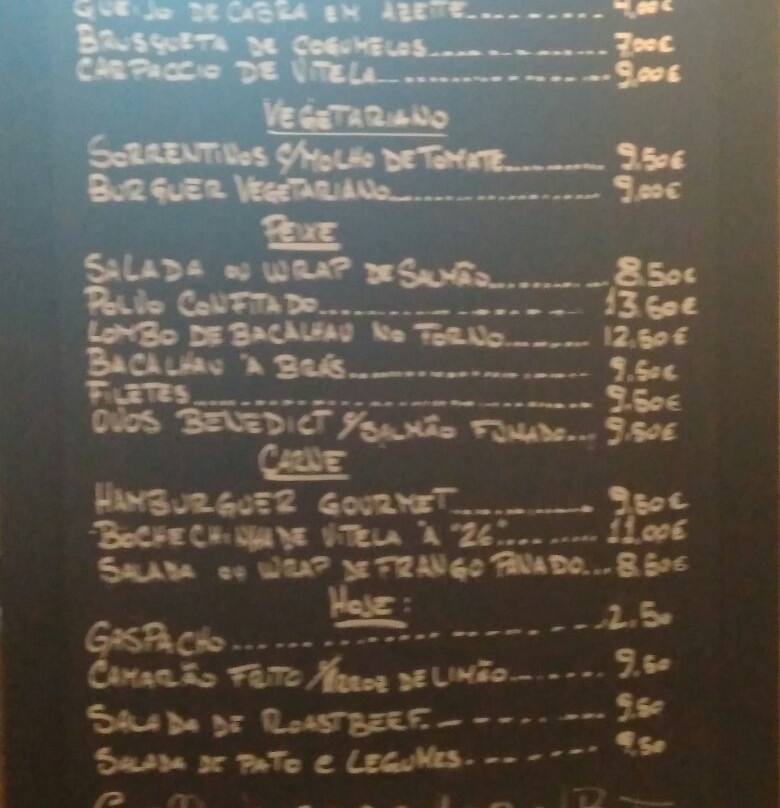 QUEIJO DE CABRA EM AZEITE........ 4,00€
BRUSQUETA DE COGUMELOS........ 7,00€
CARPACCIO DE VITELA........ 9,00€
VEGETARIANO
SORRENTINOS C/MOLHO DE TOMATE........ 9.50€
BURGUER VEGETARIANO........ 9,00€
PEIXE
SALADA OU WRAP DE SALMÃO........ 8.50€
POLVO CONFITADO........ 13.50€
LOMBO DE BACALHAU NO FORNO........ 12,50€
BACALHAU À BRÁS........ 9,50€
FILETES........ 9.50€
OVOS BENEDICT C/SALMÃO FUMADO... 9.50€
CARNE
HAMBURGUER GOURMET........ 9,50€
BOCHECHINHA DE VITELA À "26"........ 11,00€
SALADA OU WRAP DE FRANGO PANADO... 8.50€
HOJE:
GASPACHO........ 2.50
CAMARÃO FRITO C/ARROZ DE LIMÃO........ 9.50
SALADA DE ROASTBEEF........ 9.50
SALADA DE PATO E LEGUMES........ 9,50